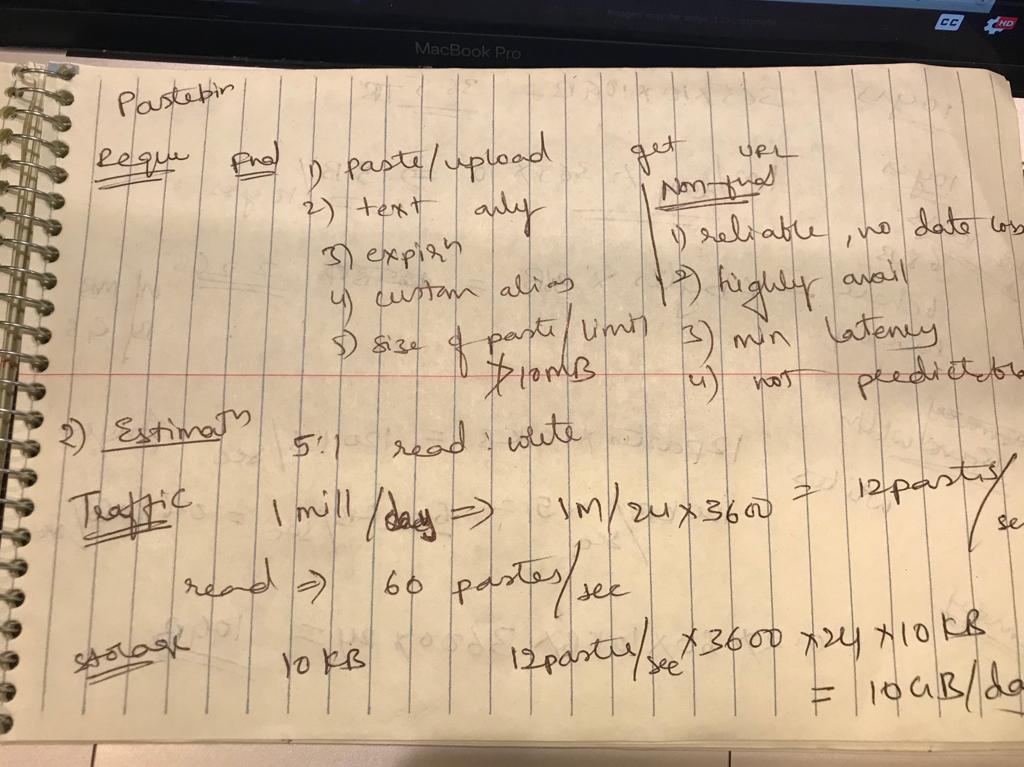 CC HD
MacBook Pro
Pastebin
Reque Fnal 1) paste/upload get URL
2) text only
3) expirⁿ
4) custom alias
5) size of paste/limit
≯10MB
Non-fnal
1) reliable, no date loss
2) highly avail
3) min latency
4) not predictable
2) Estimatⁿ 5:1 read : write
Traffic 1 mill/day => 1M/24×3600 = 12pastes/se
read => 60 pastes/sec
storage 10 KB 12paste/sec ×3600 ×24 ×10 KB
= 10GB/da